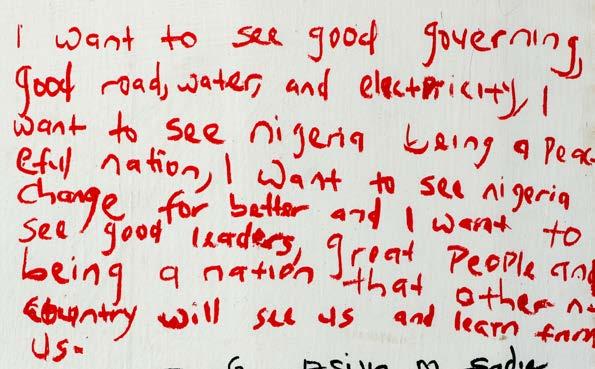 I want to see good governing,
good road, water, and electricity, I
want to see nigeria being a peac
eful nation, I want to see nigeria
change for better and I want to
see good leaders, great People and
being a nation that other n
country will see us and learn from
us.